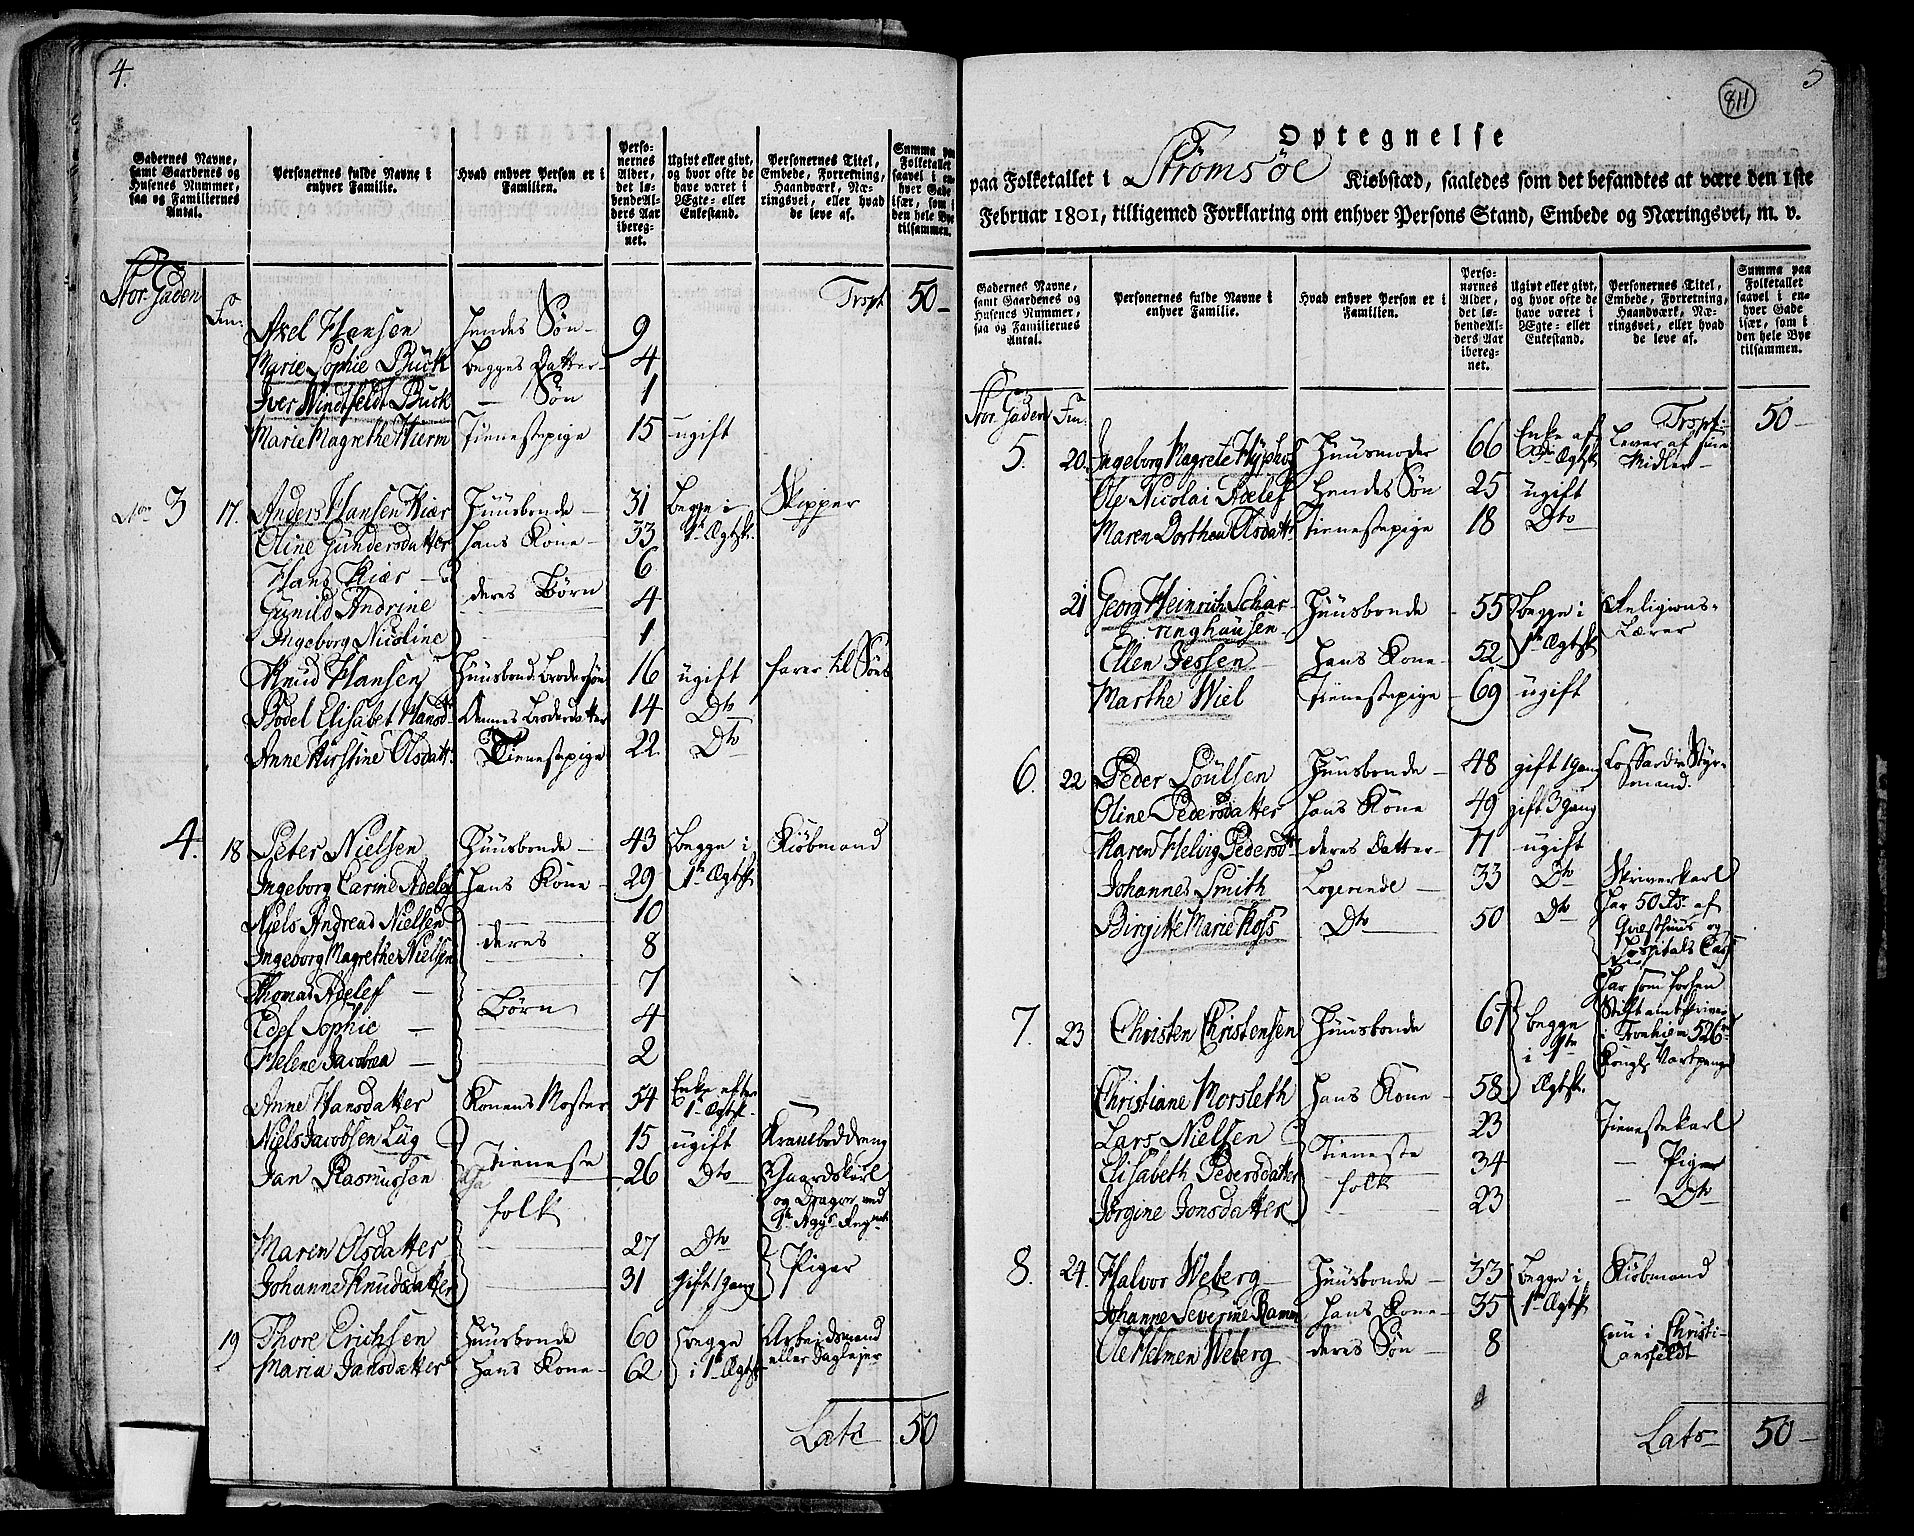 4.
Gadernes Navne, samt Gaardenes og Husenes Nummer, saa og Familiernes Antal.
Personernes fulde Navne i enhver Familie.
Hvad enhver Person er i Familien.
Personernes Alder, det løbende Alders Aar iberegnet.
Ugivt eller givt, og hvor ofte de have været i Ægte- eller Enkestand.
Personernes Titel, Embede, Forretning, Haandværk, Næringsvei, eller hvad de leve af.
Summa paa Folketallet saavel i enhver Gade især, som i den hele Bye tilsammen.
Stor-Gaden Fm: Trspt 50
Axel Hansen hendes Søn 9
Marie Sophie Buck begges Datter 4
Iver Windtfeldt Buck — Søn 1
Marie Magrethe Wurm Tienestepige 15 ugift
No 3 17. Anders Hansen Kiær Huusbonde 31 Begge i Skipper
Oline Gundersdatter hans Kone 33 1te Ægtsk.
Hans Kiær 6
Gunild Andrine deres Børn 4
Ingeborg Nicoline 1
Knud Hansen Huusbond. Brodersøn 16 ugift farer til Søes
Bodel Elisabet Hansd. Dennes Broderdatter 14 Dto
Anne Kirstine Olsdatt. Tienestepige 22 Dto
4. 18 Peter Nielsen Huusbonde 43 Begge i Kiøbmand
Ingeborg Carine Adelef hans Kone 29 1te Ægtsk
Niels Andreas Nielsen 10
Ingeborg Magrethe Nielsen deres 8
Thomas Adelef 7
Edel Sophie Børn 4
Helene Jacobea 2
Anne Hansdatter Konens Moster 54 Enke efter 1te Ægtsk
Niels Jacobsen Lug Tieneste 15 ugift Kramboddreng
Jan Rasmussen 26 Dto Gaardskarl
folk og Dragon ved
Maren Olsdatter 27 Dto
Johanne Knudsdatter 31 gift 1 gang Piger
19 Thore Erichsen Huusbonde 60 begge Arbeidsmand
Maria Jansdatter hans Kone 62 i 1te Ægtsk eller Daglejer
Lats 50
5
811
Optegnelse
paa Folketallet i Strømsøe Kiøbstæd, saaledes som det befandtes at være den 1ste
Februar 1801, tilligemed Forklaring om enhver Persons Stand, Embede og Næringsvei, m. v.
Gadernes Navne, samt Gaardenes og Husenes Nummer, saa og Familiernes Antal.
Personernes fulde Navne i enhver Familie.
Hvad enhver Person er i Familien.
Personernes Alder, det løbende Alders Aar iberegnet.
Ugivt eller givt, og hvor ofte de have været i Ægte- eller Enkestand.
Personernes Titel, Embede, Forretning, Haandværk, Næringsvei, eller hvad de leve af.
Summa paa Folketallet saavel i enhver Gade især, som i den hele Bye tilsammen.
Stor-Gaden Fm. Trspt 50
5. 20. Ingeborg Magrete Huusmoder 66 Enke af 1te Ægtsk Lever af sine Midler
Ole Nicolai Adelef Hendes Søn 25 ugift
Maren Dorthea Olsdatt. Tienestepige 18 Dto
21 Georg Heinrich Scharringhausen Huusbonde 55 Begge i Religions-Lærer
Ellen Jessen hans Kone 52 1te Ægtsk
Marthe Wiel Tienestepige 69 ugift
6. 22 Peder Poulsen Huusbonde 48 gift 1 gang Coffardie Styrmand.
Oline Pedersdatter hans Kone 49 gift 3 gang
Karen Helvig Pedersd. deres Datter 17 ugift
Johannes Smith Logerende 33 Dto Skriverkarl
Birgitte Marie Koss Dto 50 Dto har 50 rd. af Qvæsthuus og Hospitals Cass
7. 23 Christen Christensen Huusbonde 67 begge i 1te Ægtsk. har som forhen Stiftamtskriver i Tronhiem 526 rd Kongl. Vartpenge
Christiane Morsleth hans Kone 58
Lars Nielsen Tieneste 23 Tienestekarl
Elisabeth Pedersdatter folk 34 Piger
Jørgine Jonsdatter 23 Dto
8. 24. Halvor Weberg Huusbonde 33 Begge i Kiøbmand
Johanne Severine Ramm hans Kone 35 1te Ægtsk
Ole Helmen Weberg deres Søn 8 nu i Christiansfeldt
Lats 50